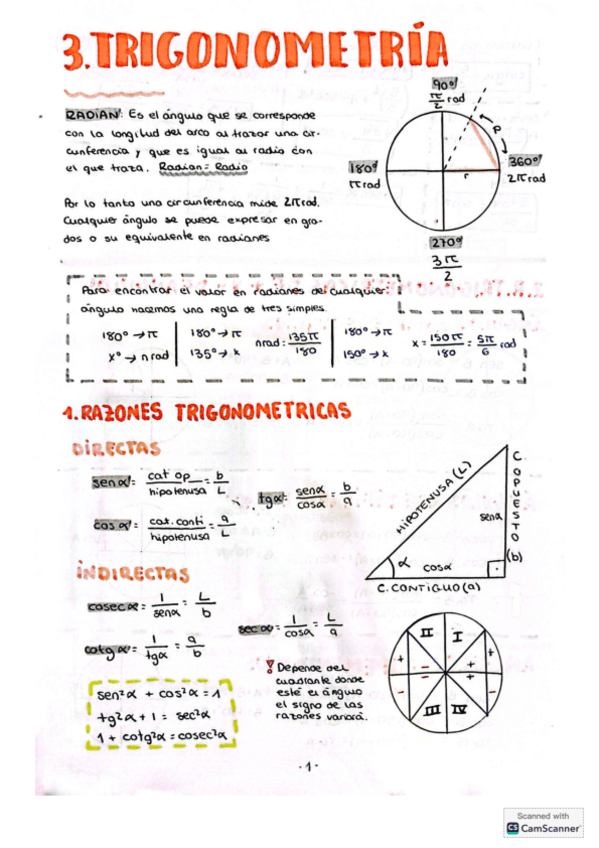 3.TRIGONOMETRÍA
RADIAN: Es el ángulo que se corresponde
con la longitud del arco al trazar una cir-
cunferencia y que es igual al radio con
el que traza. Radian = Radio
Por lo tanto una circunferencia mide 2π rad.
Cualquier ángulo se puede expresar en gra-
dos o su equivalente en radianes
90º
π/2 rad
R
180º
π rad
r
360º
2π rad
270º
3π/2
Para encontrar el valor en radianes del cualquier
ángulo hacemos una regla de tres simples.
180º → π
xº → n rad
180º → π
135º → x
nrad = 135π/180
180º → π
150º → x
x = 150π/180 = 5π/6 rad
1.RAZONES TRIGONOMETRICAS
DIRECTAS
sen α = cat op/hipotenusa = b/L
cos α = cat. conti/hipotenusa = a/L
tg α = sen α/cos α = b/a
HIPOTENUSA (L)
C. OPUESTO (b)
sen α
α
cos α
C. CONTIGUO (a)
INDIRECTAS
cosec α = 1/sen α = L/b
sec α = 1/cos α = L/a
cotg α = 1/tg α = a/b
! Depende del
cuadrante donde
esté el ángulo
el signo de las
razones variará.
II I
+ - + +
- - + -
III IV
sen²α + cos²α = 1
tg²α + 1 = sec²α
1 + cotg²α = cosec²α
·1·
Scanned with
CS CamScanner